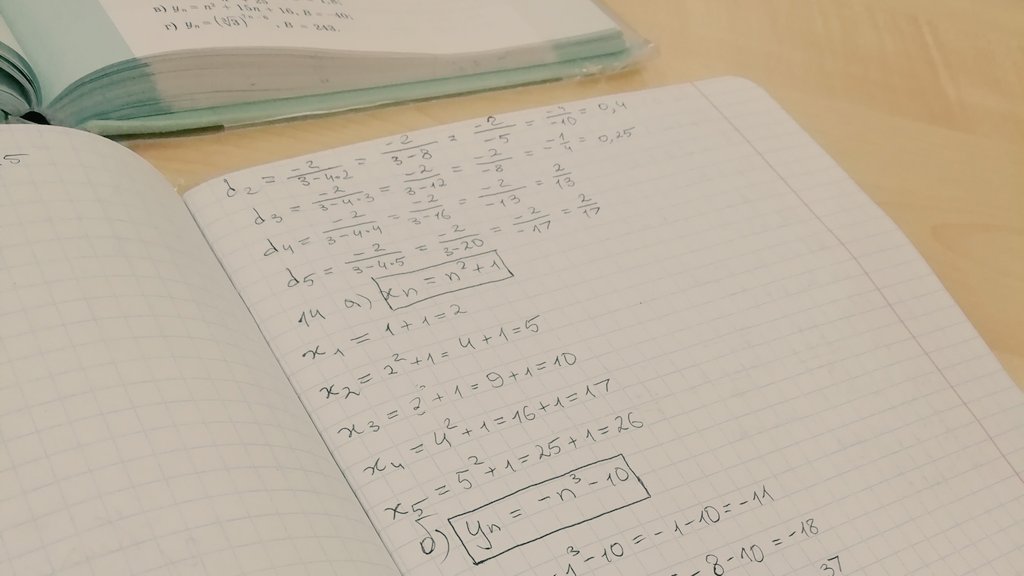 в) yₙ = n² + 15n + 16, B = −40;
г) yₙ = (∛3) , B = 243.
5
d₂ = -2/(3-4·2) = -2/(3-8) = -2/-5 = 4/-10 = 0,4
d₃ = -2/(3-4·3) = -2/(3-12) = -2/-8 = -1/4 = 0,25
d₄ = -2/(3-4·4) = -2/(3-16) = -2/-13 = 2/13
d₅ = -2/(3-4·5) = -2/(3-20) = -2/-17 = 2/17
14 а) xₙ = n² + 1
x₁ = 1 + 1 = 2
x₂ = 2² + 1 = 4 + 1 = 5
x₃ = 2² + 1 = 9 + 1 = 10
x₄ = 4² + 1 = 16 + 1 = 17
x₅ = 5² + 1 = 25 + 1 = 26
б) yₙ = -n³ - 10
1³ - 10 = -1 - 10 = -11
- 8 - 10 = -18
37